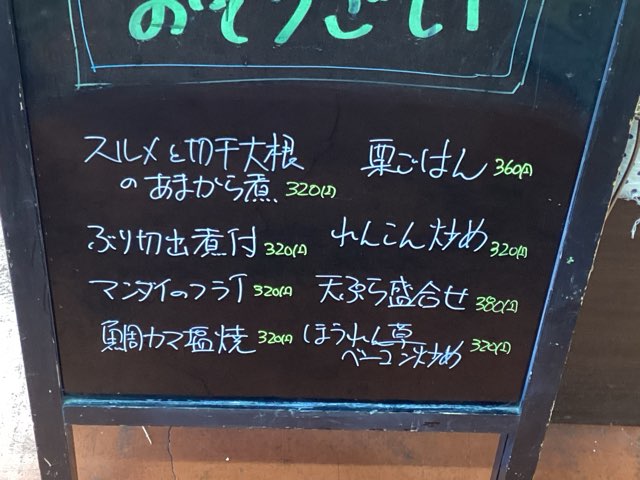 おそうざい
スルメと切干大根
のあまから煮 320円
栗ごはん 360円
ぶり切出煮付 320円
れんこん炒め 320円
マンダイのフライ 320円
天ぷら盛合せ 380円
鯛カマ塩焼 320円
ほうれん草
ベーコン炒め 320円